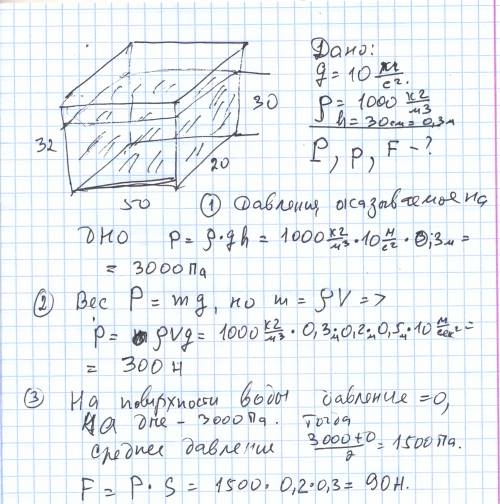 Дано:
g = 10 м/с².
ρ = 1000 кг/м3
h = 30см = 0,3м
P, p, F - ?
32
30
20
50
① Давления оказываемое на
дно p = ρ·gh = 1000 кг/м3 · 10 м/с² · 0,3м =
= 3000 Па
② Вес P = mg, но m = ρV =>
P = ρVg = 1000 кг/м3 · 0,3м 0,2м 0,5м · 10 м/сек² =
= 300 Н
③ На поверхности воды давление = 0,
На дне - 3000 Па. Тогда
среднее давление 3000+0/2 = 1500 Па.
F = P · S = 1500 · 0,2 · 0,3 = 90 Н.